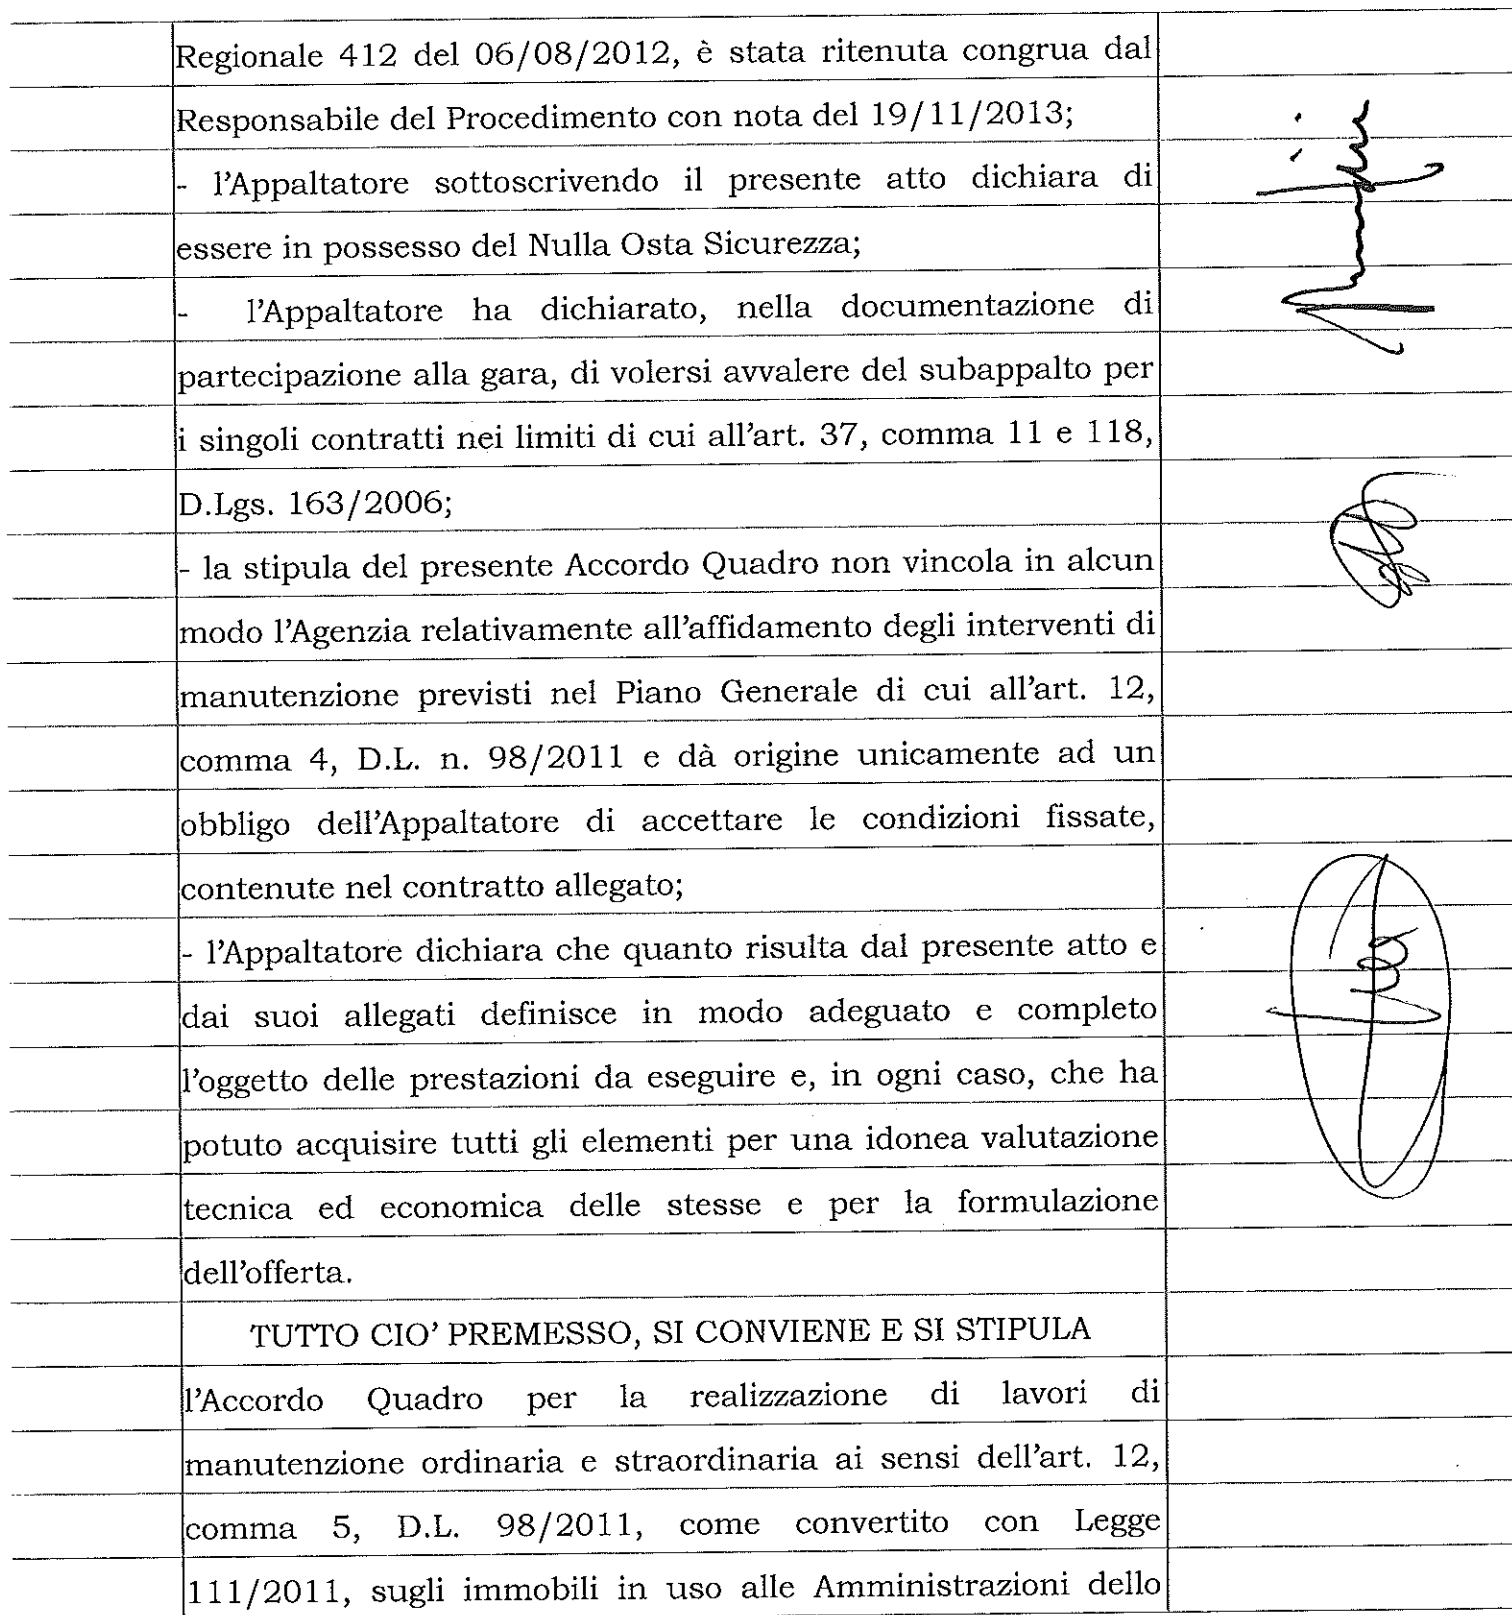 Regionale 412 del 06/08/2012, è stata ritenuta congrua dal
Responsabile del Procedimento con nota del 19/11/2013;
- l'Appaltatore sottoscrivendo il presente atto dichiara di
essere in possesso del Nulla Osta Sicurezza;
- l'Appaltatore ha dichiarato, nella documentazione di
partecipazione alla gara, di volersi avvalere del subappalto per
i singoli contratti nei limiti di cui all'art. 37, comma 11 e 118,
D.Lgs. 163/2006;
- la stipula del presente Accordo Quadro non vincola in alcun
modo l'Agenzia relativamente all'affidamento degli interventi di
manutenzione previsti nel Piano Generale di cui all'art. 12,
comma 4, D.L. n. 98/2011 e dà origine unicamente ad un
obbligo dell'Appaltatore di accettare le condizioni fissate,
contenute nel contratto allegato;
- l'Appaltatore dichiara che quanto risulta dal presente atto e
dai suoi allegati definisce in modo adeguato e completo
l'oggetto delle prestazioni da eseguire e, in ogni caso, che ha
potuto acquisire tutti gli elementi per una idonea valutazione
tecnica ed economica delle stesse e per la formulazione
dell'offerta.
TUTTO CIO' PREMESSO, SI CONVIENE E SI STIPULA
l'Accordo Quadro per la realizzazione di lavori di
manutenzione ordinaria e straordinaria ai sensi dell'art. 12,
comma 5, D.L. 98/2011, come convertito con Legge
111/2011, sugli immobili in uso alle Amministrazioni dello